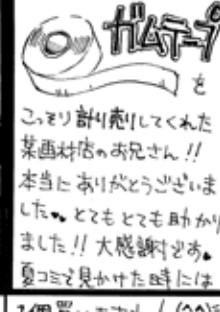 ガムテープ
を
こっそり計り売りしてくれた
某画材店のお兄さん!!
本当にありがとうございま
した。とてもとても助かり
ました!! 大感謝です。
夏コミで見かけた時には